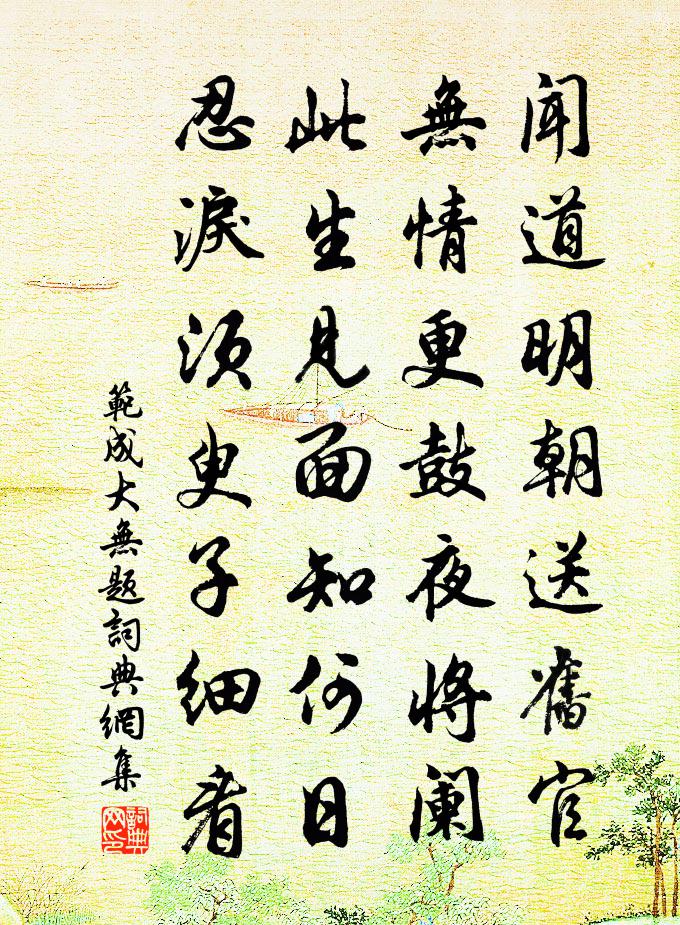 闻道明朝送舊官
無情更鼓夜將闌
此生見面知何日
忍淚須臾子細看
範成大無題詞典網集
詞典網印